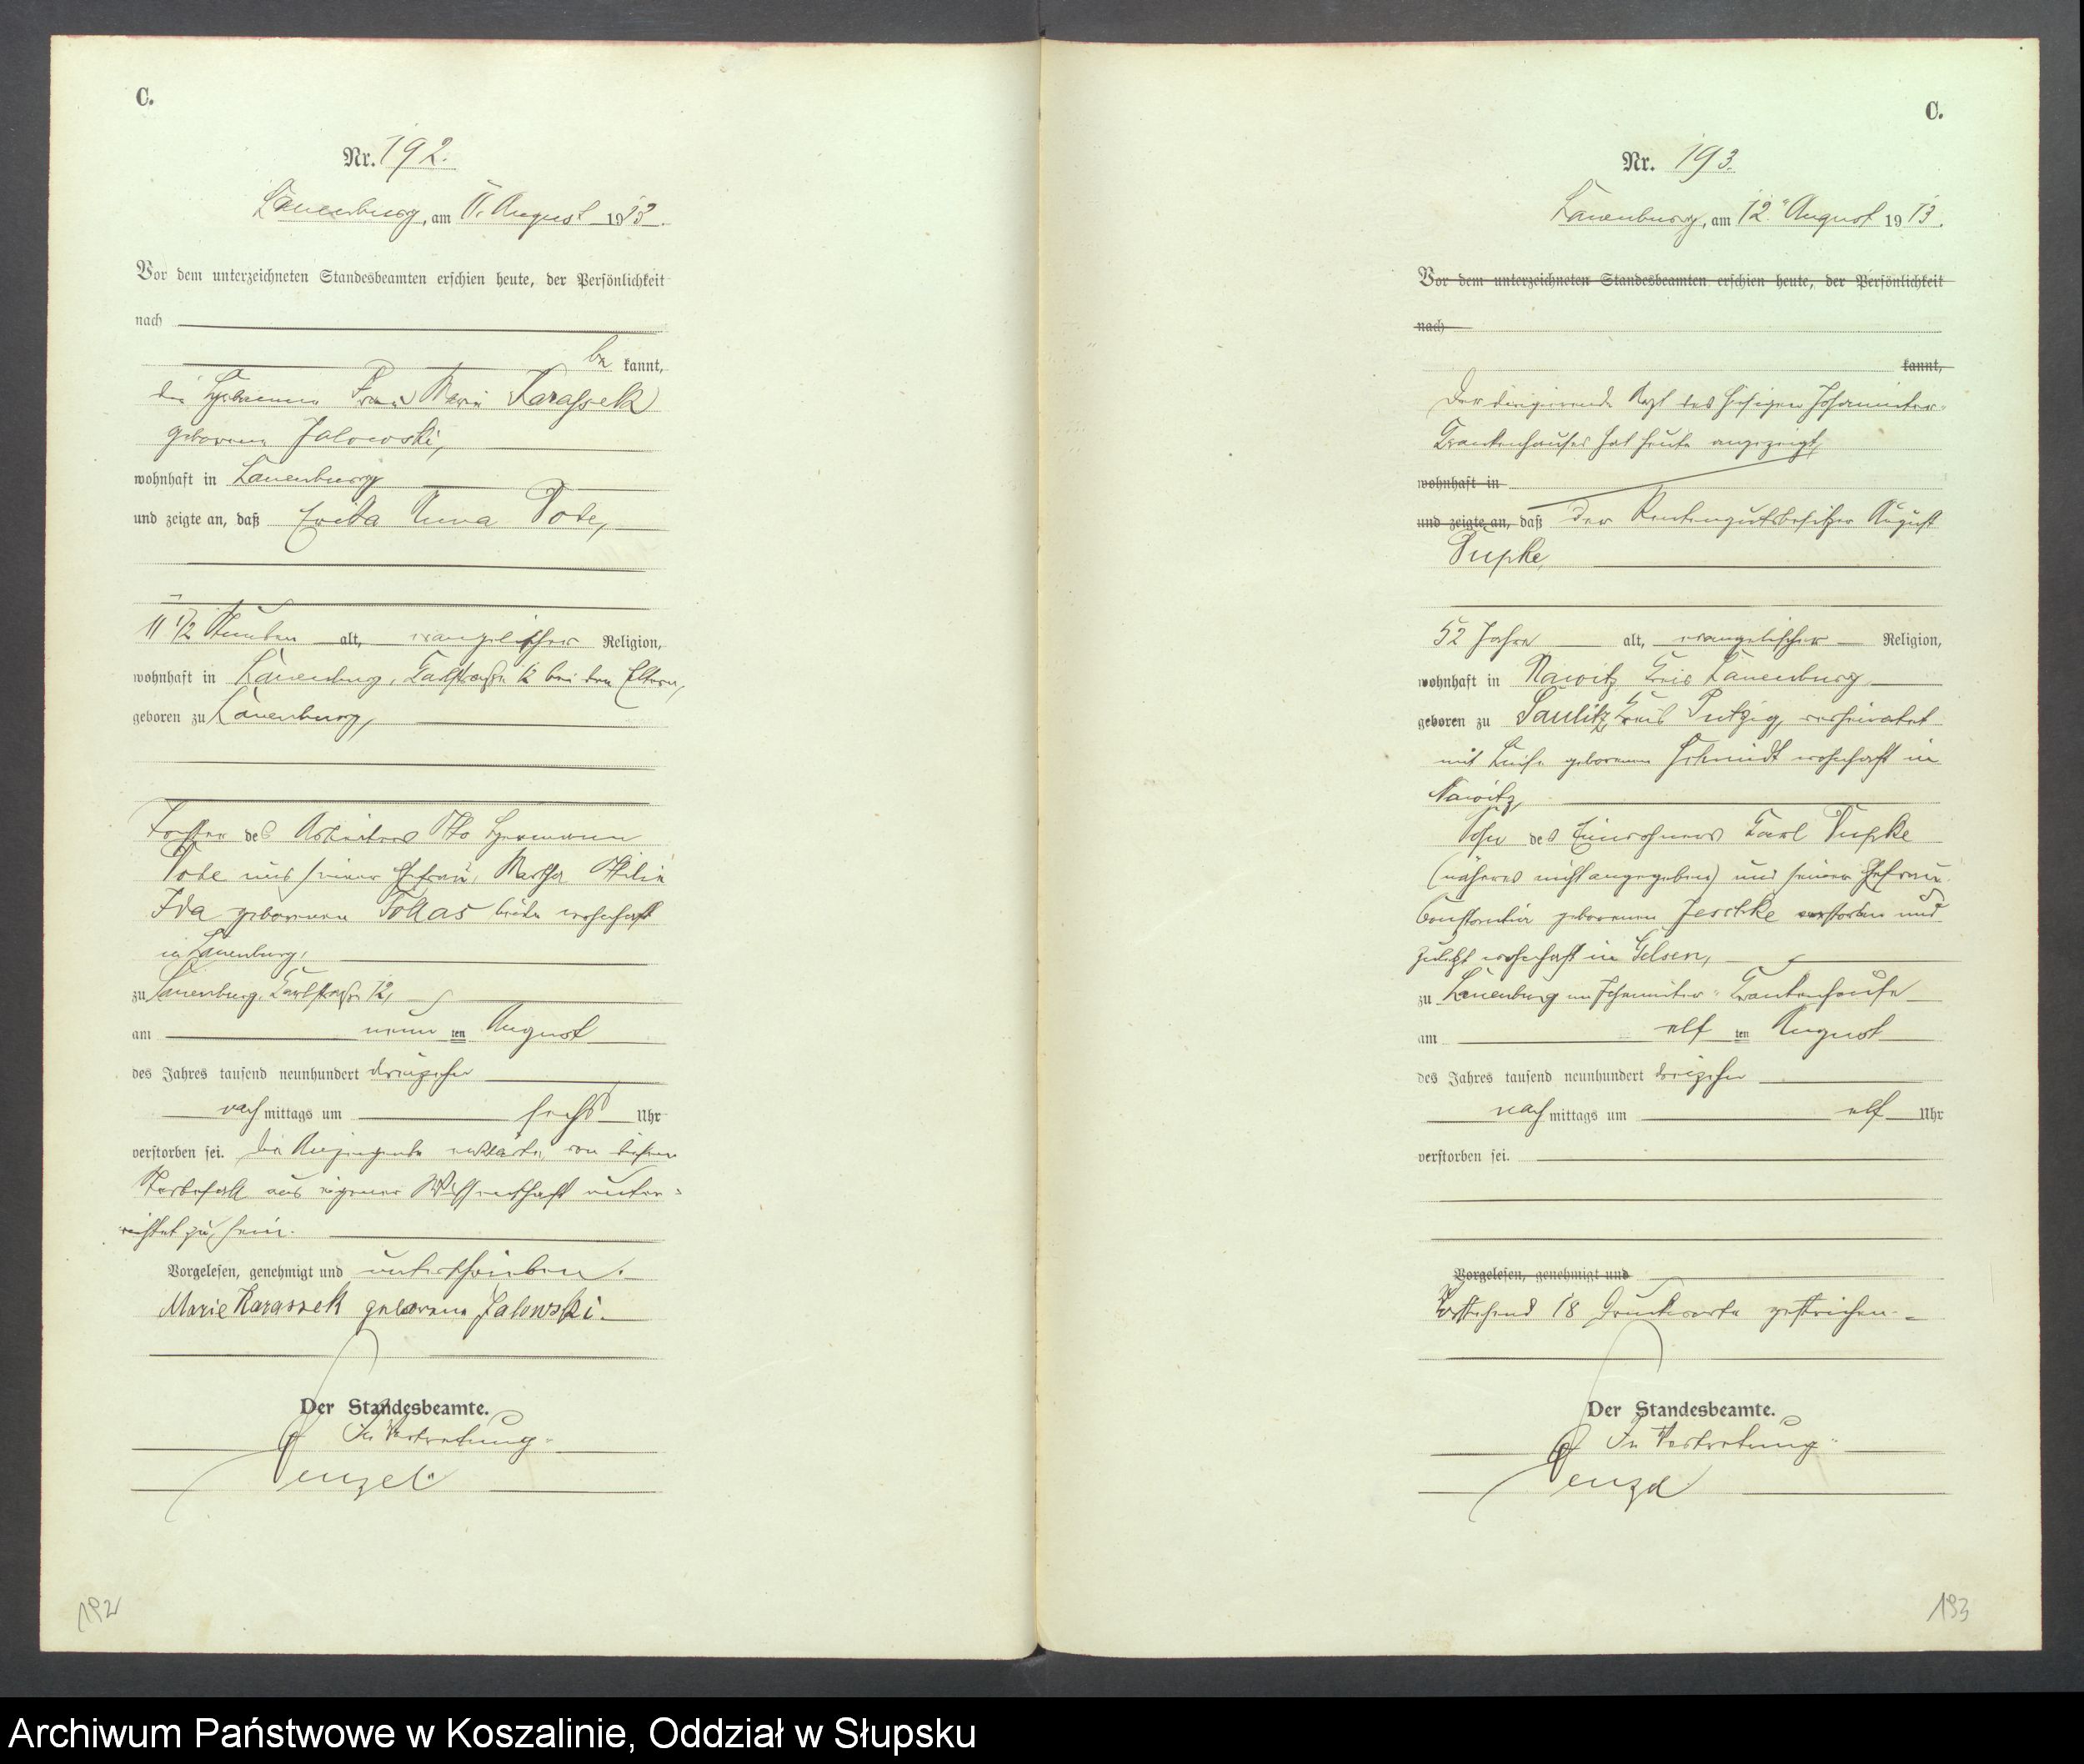 C.
Nr. 192.
Lauenburg, am 11. August 1913.
Vor dem unterzeichneten Standesbeamten erschien heute, der Persönlichkeit
nach
be kannt,
die Hebamme Frau Marie Karassek
geborene Jalowski,
wohnhaft in Lauenburg
und zeigte an, daß Erika Anna Tode,
11 1/2 Stunden alt, evangelischer Religion,
wohnhaft in Lauenburg, Karlstraße 12 bei den Eltern,
geboren zu Lauenburg,
Tochter des Arbeiters Otto Hermann
Tode und seiner Ehefrau, Martha Ottilie
Ida geborenen beide wohnhaft
in Lauenburg,
zu Lauenburg, Karlstraße 12,
am neun ten August
des Jahres tausend neunhundert dreizehn
nach mittags um sechs Uhr
verstorben sei. Die Anzeigende erklärte, von diesem
Sterbefall aus eigener Wissenschaft unter-
richtet zu sein.
Vorgelesen, genehmigt und unterschrieben.
Marie Karassek geborene Jalowski.
Der Standesbeamte.
In Vertretung.
Penzel.
192
C.
Nr. 193.
Lauenburg, am 12. August 1913.
Vor dem unterzeichneten Standesbeamten erschien heute, der Persönlichkeit
nach
kannt,
Der dirigierende Arzt des hiesigen Johanniter-
Krankenhauses hat heute angezeigt,
wohnhaft in
und zeigte an, daß der Rentengutsbesitzer August
Pupke,
52 Jahre alt, evangelischer Religion,
wohnhaft in Nawitz Kreis Lauenburg
geboren zu Saulitz, Kreis Putzig, verheiratet
mit Luise geborenen Schmidt wohnhaft in
Nawitz,
Sohn des Einwohners Karl Pupke
(näheres nicht angegeben) und seiner Ehefrau
Constantia geborenen Jeschke verstorben und
zuletzt wohnhaft in Gelsen,
zu Lauenburg im Johanniter-Krankenhause
am elf ten August
des Jahres tausend neunhundert dreizehn
nach mittags um elf Uhr
verstorben sei.
Vorgelesen, genehmigt und
Vorstehend 18 Druckworte gestrichen.
Der Standesbeamte.
In Vertretung.
Penzel
193
Archiwum Państwowe w Koszalinie, Oddział w Słupsku